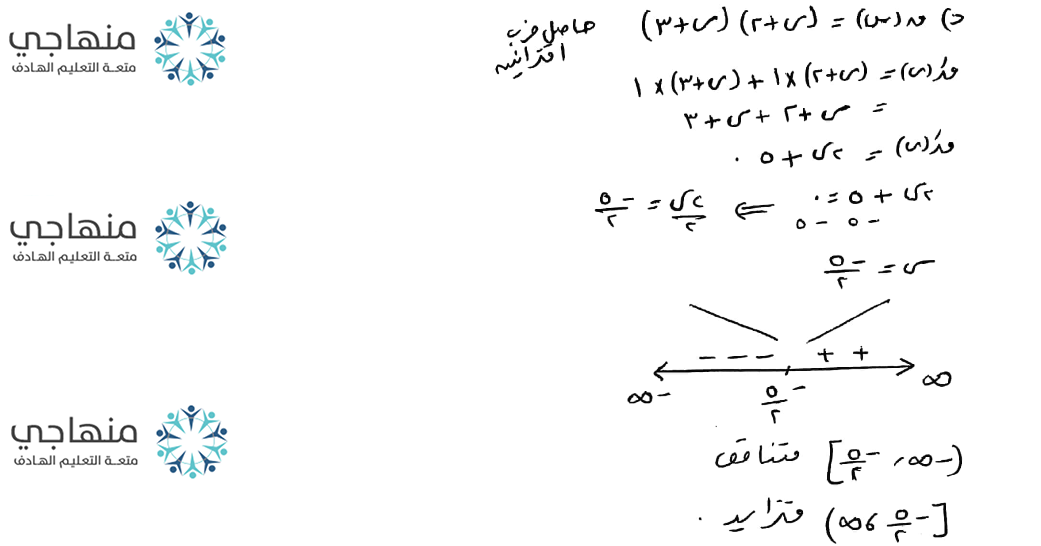 د) ق(س) = (س+٢) (س+٣) حاصل ضرب
اقترانين
قَ(س) = (س+٢) × ١ + (س+٣) × ١
= س + ٢ + س + ٣
قَ(س) = ٢س + ٥ .
٢س + ٥ = ٠ ⇐ ٢س/٢ = -٥/٢
-٥ -٥
س = -٥/٢
- - - + +
-∞ -٥/٢ ∞
(-∞، -٥/٢] متناقص
[-٥/٢، ∞) متزايد .
منهاجي
متعة التعليم الهادف
منهاجي
متعة التعليم الهادف
منهاجي
متعة التعليم الهادف